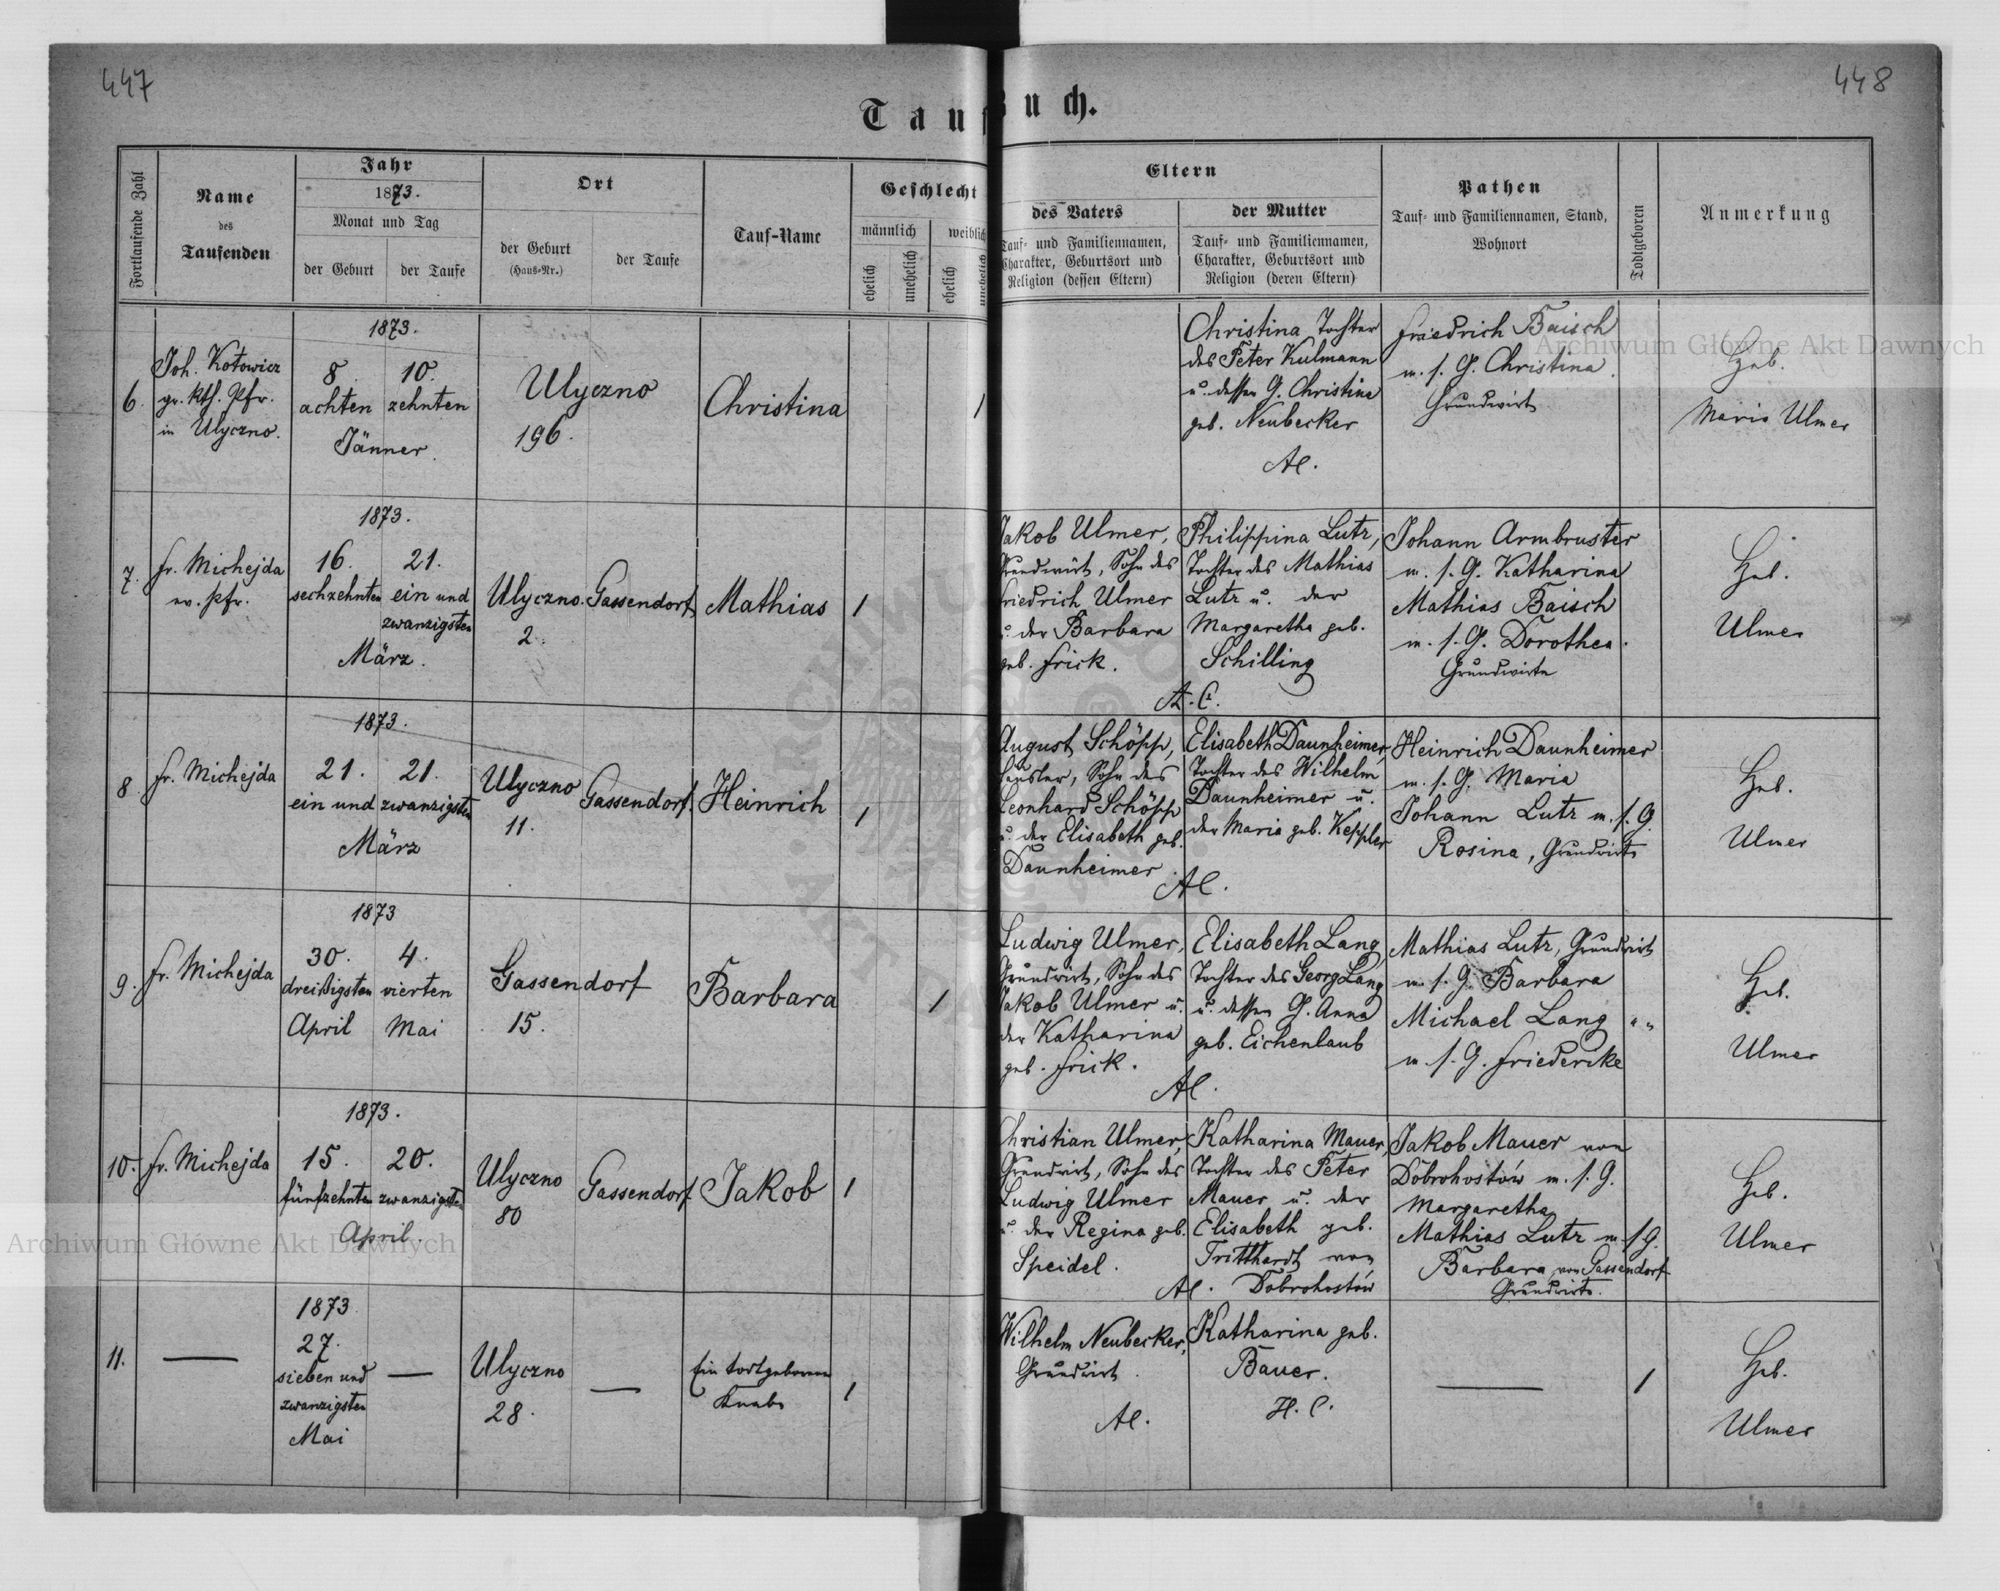 447
448
Taufbuch.
Fortlaufende Zahl
Name
des
Taufenden
Jahr
1873.
Monat und Tag
der Geburt
der Taufe
Ort
der Geburt
(Haus-Nr.)
der Taufe
Tauf-Name
Geschlecht
männlich
weiblich
ehelich
unehelich
ehelich
unehelich
Eltern
des Vaters
Tauf- und Familiennamen,
Charakter, Geburtsort und
Religion (dessen Eltern)
der Mutter
Tauf- und Familiennamen,
Charakter, Geburtsort und
Religion (deren Eltern)
Pathen
Tauf- und Familiennamen, Stand,
Wohnort
Todtgeboren
Anmerkung
6.
Joh. Kotowicz
gr. kth. Pfr.
in Ulyczno.
1873.
8. 10.
achten zehnten
Jänner.
Ulyczno
196.
Christina
1
Christina Tochter
des Peter Kulmann
u. dessen G. Christina
geb. Neubecker
AC.
Friedrich Baisch
m. s. G. Christina.
Grundwirt
Heb.
Maria Ulmer
7.
Fr. Michejda
ev. Pfr.
1873.
16. 21.
sechzehnten ein und
zwanzigsten
März.
Ulyczno.
2.
Gassendorf
Mathias
1
Jakob Ulmer,
Grundwirt, Sohn des
Friedrich Ulmer
u. der Barbara
geb. Frick.
Philippina Lutz,
Tochter des Mathias
Lutz u. der
Margaretha geb.
Schilling
A.C.
Johann Armbruster
m. s. G. Katharina
Mathias Baisch
m. s. G. Dorothea.
Grundwirte
Heb.
Ulmer
8.
Fr. Michejda
1873.
21. 21.
ein und zwanzigsten
März
Ulyczno
11.
Gassendorf.
Heinrich
1
August Schöpp,
Häusler, Sohn des
Leonhard Schöpp
u. der Elisabeth geb.
Daunheimer
Elisabeth Daunheimer,
Tochter des Wilhelm
Daunheimer u.
der Maria geb. Keppler
AC.
Heinrich Daunheimer
m. s. G. Maria
Johann Lutz m. s. G.
Rosina, Grundwirte
Heb.
Ulmer
9.
Fr. Michejda
1873
30. 4.
dreißigsten vierten
April Mai
Gassendorf
15.
Barbara
1
Ludwig Ulmer,
Grundwirt, Sohn des
Jakob Ulmer u.
der Katharina
geb. Frick.
Elisabeth Lang,
Tochter des Georg Lang
u. dessen G. Anna
geb. Eichenlaub
AC.
Mathias Lutz, Grundwirt
m. s. G. Barbara
Michael Lang " "
m. s. G. Friedericke
Heb.
Ulmer
10.
Fr. Michejda
1873.
15. 20.
fünfzehnten zwanzigsten
April.
Ulyczno
80
Gassendorf
Jakob
1
Christian Ulmer,
Grundwirt, Sohn des
Ludwig Ulmer
u. der Regina geb.
Speidel.
Katharina Mauer,
Tochter des Peter
Mauer u. der
Elisabeth geb.
Tritthardt von
AC. Dobrohostów
Jakob Mauer von
Dobrohostów m. s. G.
Margaretha
Mathias Lutz m. s. G.
Barbara von Gassendorf
Grundwirte.
Heb.
Ulmer
11.
1873
27.
sieben und
zwanzigsten
Mai
Ulyczno
28.
Ein todtgeborener
Knabe
1
Wilhelm Neubecker,
Grundwirt.
AC.
Katharina geb.
Bauer.
H. C.
1
Heb.
Ulmer
Archiwum Główne Akt Dawnych
Archiwum Główne Akt Dawnych